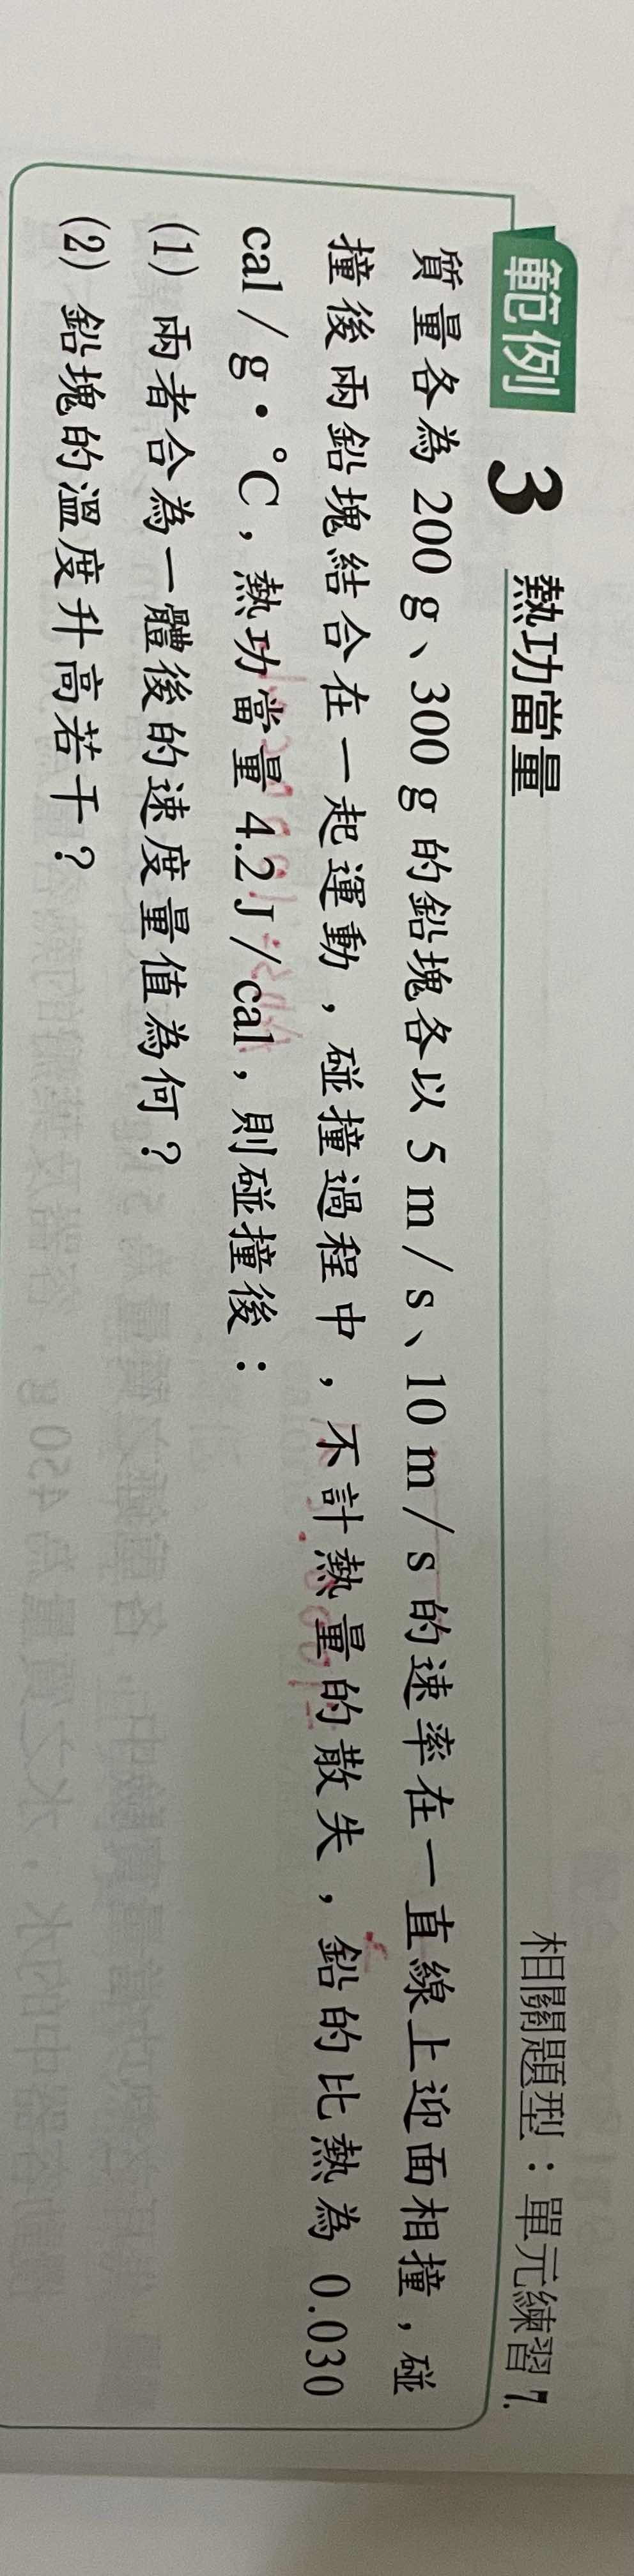 範例 3 熱功當量 相關題型：單元練習 7.
質量各為 200 g、300 g 的鉛塊各以 5 m／s、10 m／s 的速率在一直線上迎面相撞，碰
撞後兩鉛塊結合在一起運動，碰撞過程中，不計熱量的散失，鉛的比熱為 0.030
cal／g·℃，熱功當量 4.2 J／cal，則碰撞後：
(1) 兩者合為一體後的速度量值為何？
(2) 鉛塊的溫度升高若干？